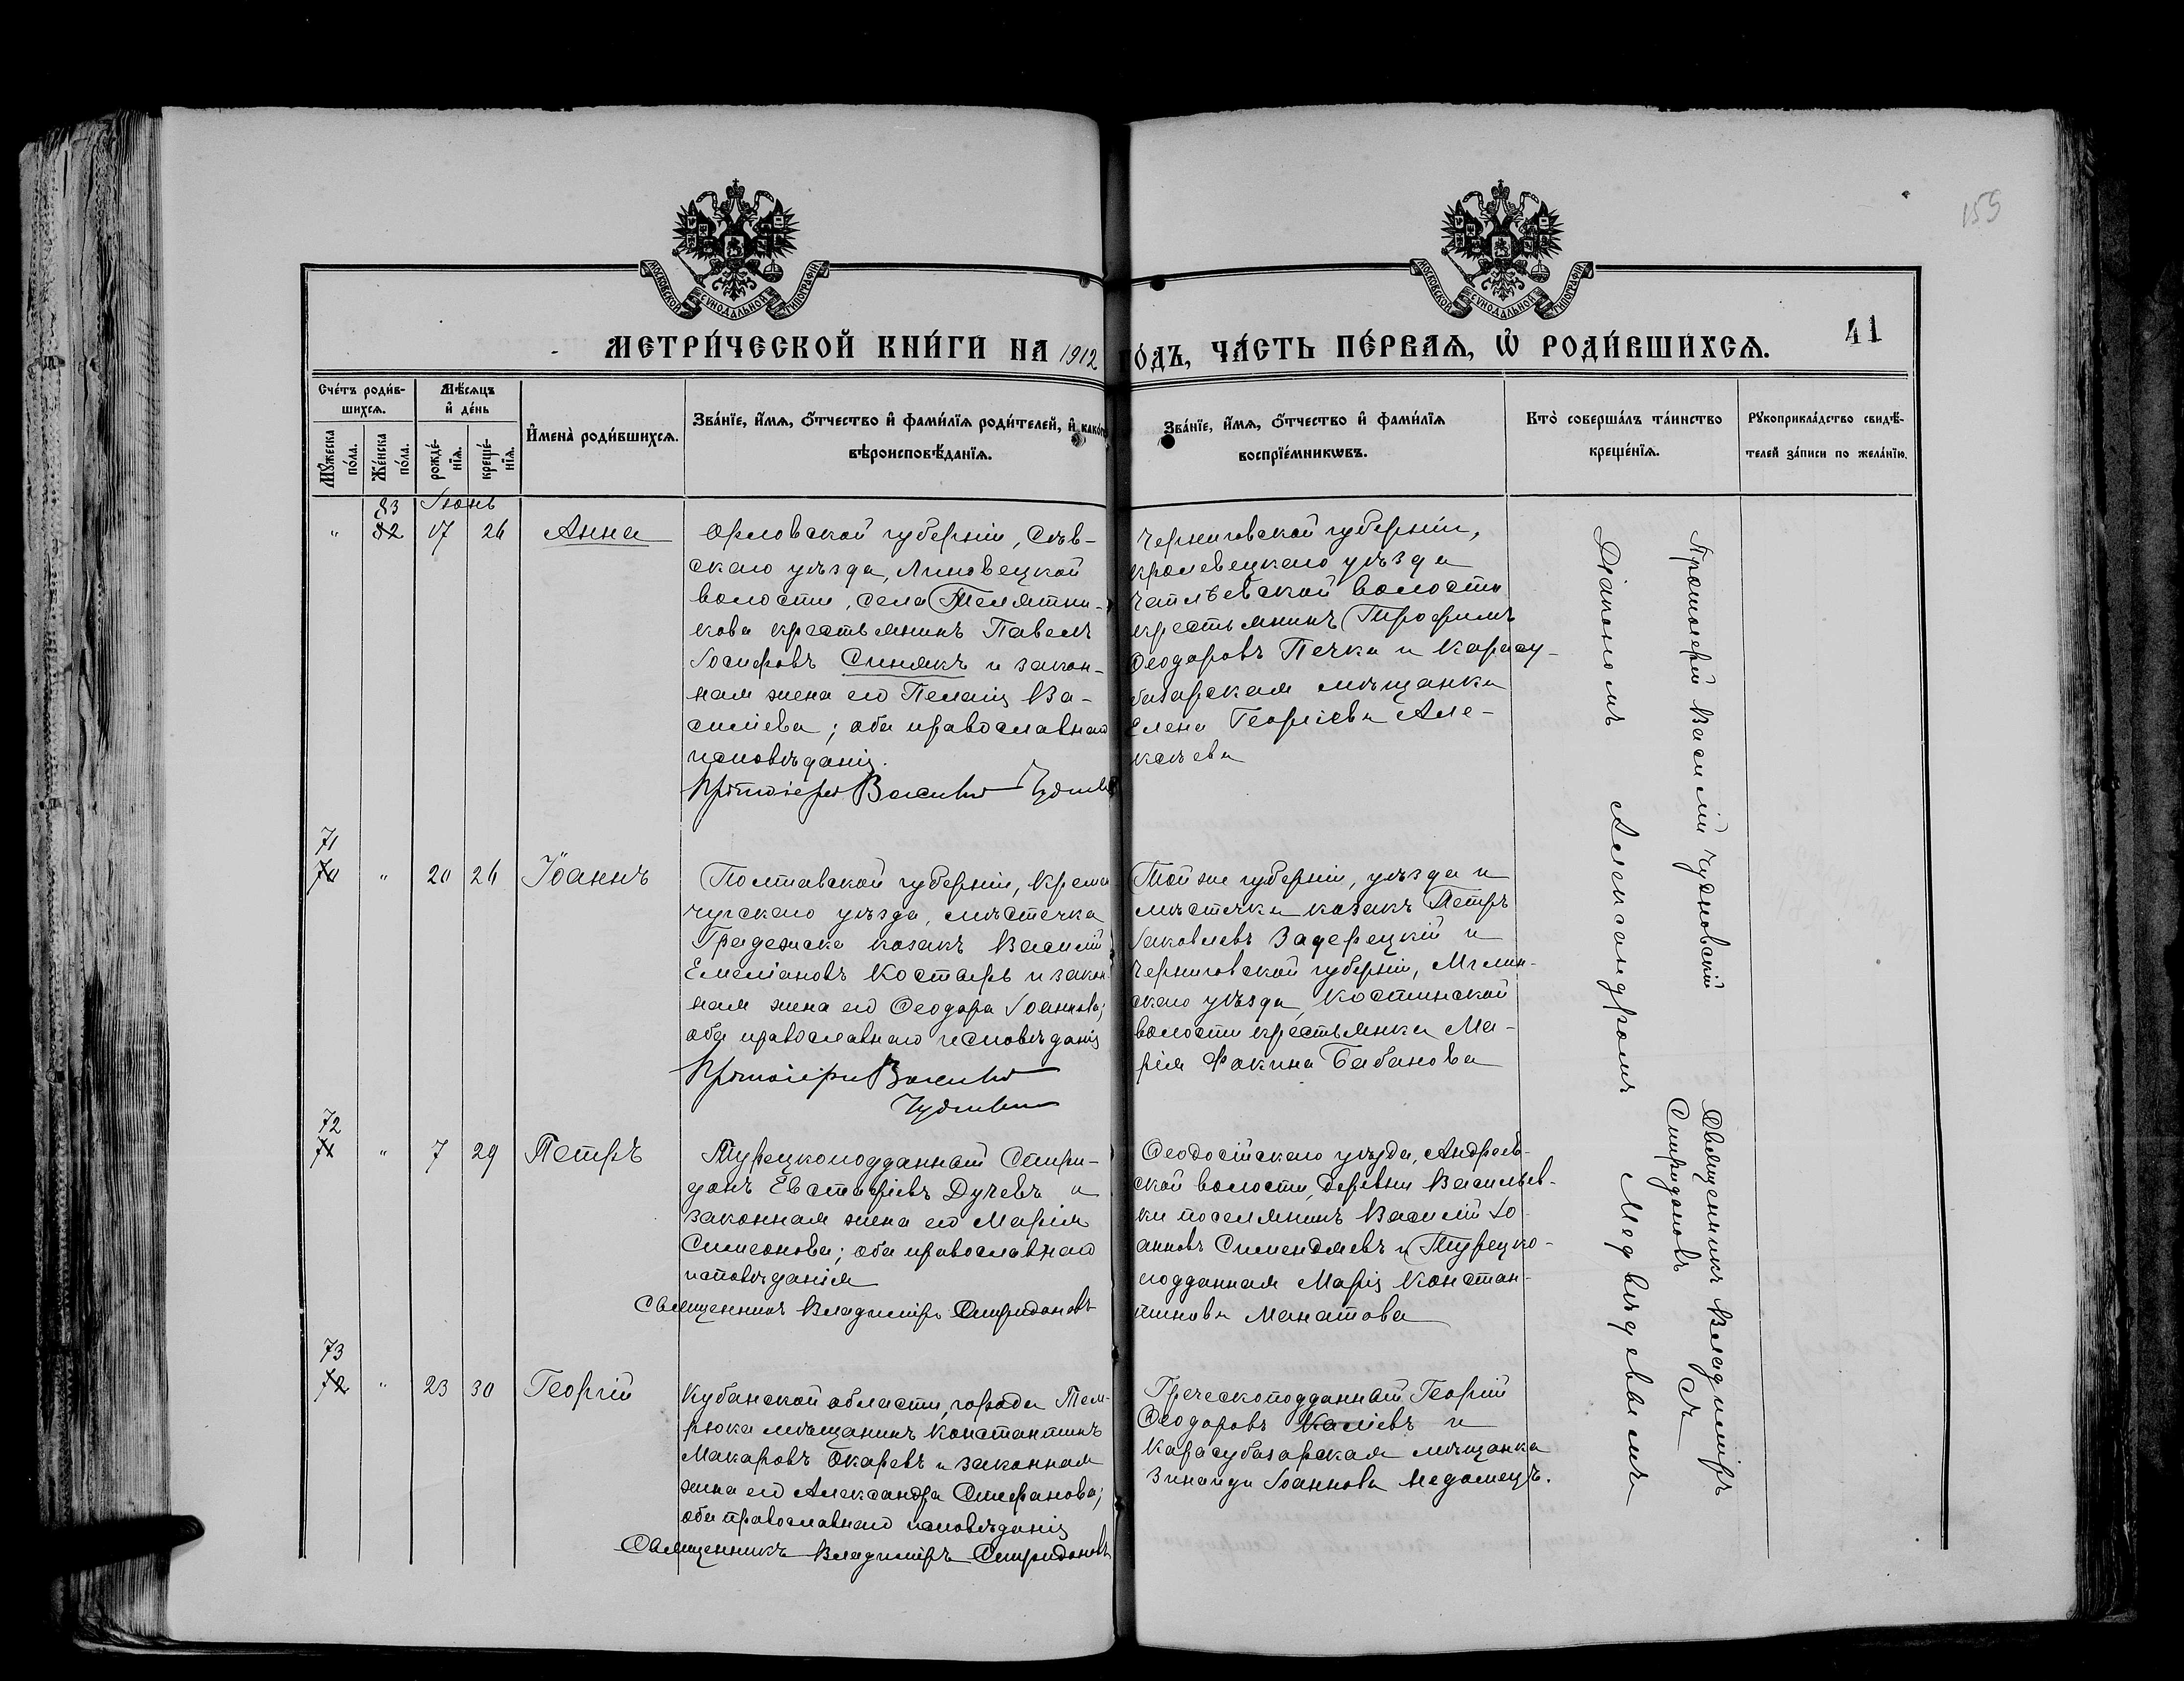 155
МОСКОВСКОЙ СѴНОДАЛЬНОЙ ТИПОГРАФІИ
МОСКОВСКОЙ СѴНОДАЛЬНОЙ ТИПОГРАФІИ
МЕТРИ́ЧЕСКОЙ КНИ́ГИ НА 1912 ГО́ДЪ, ЧА́СТЬ ПЕ́РВАѦ, Ѡ҆ РОДИ́ВШИХСѦ.
41
Сче́тъ роди́в-
шихсѧ.
Мѣ́сѧцъ
и҆ де́нь
Мꙋ́жеска по́ла.
Же́нска по́ла.
рожде́-
нїѧ.
креще́-
нїѧ.
И҆мена̀ роди́вшихсѧ.
Зва́нїе, и҆́мѧ, ѻ҆́тчество и҆ фами́лїѧ роди́телей, и҆ како́гѡ
вѣроисповѣ́данїѧ.
Зва́нїе, и҆́мѧ, ѻ҆́тчество и҆ фами́лїѧ
воспрїе́мникѡвъ.
Кто̀ соверша́лъ та́инство
креще́нїѧ.
Рꙋкоприкла́дство свидѣ́-
телей за́писи по жела́нїю.
83 Іюнь
" 82 17 26 Анна
Орловской губерніи, Сѣв-
скаго уѣзда, Липовецкой
волости, села Телятни-
кова крестьянинъ Павелъ
Іосифовъ Синякъ и закон-
ная жена его Пелагія Ва-
силіева; оба православнаго
исповѣданія.
Протоіерей Василій
Черниговской губерніи,
Кролевецкаго уѣзда
волости
крестьянинъ Трофимъ
Ѳеодоровъ Печка и Карасу-
базарская мѣщанка
Елена Георгіева Але-
ксѣева
71
70 " 20 26 Іоаннъ
Полтавской губерніи, Кремен-
чугскаго уѣзда, мѣстечка
Градежска козакъ Василій
Емеліановъ Костырь и закон-
ная жена его Ѳеодора Іоаннова;
оба православнаго исповѣданія
Протоіерей Василій
Той же губерніи, уѣзда и
мѣстечка козакъ Петръ
Іаковлевъ Задерецкій и
Черниговской губерніи, Мглин-
скаго уѣзда, Костинской
волости крестьянка Ма-
рія Фокина Бабанова
72
71 " 7 29 Петръ
Турецкоподданный Спири-
донъ Евстафіевъ Дучевъ и
законная жена его Марія
Симеонова; оба православнаго
исповѣданія
Священникъ Владиміръ Спиридоновъ
Ѳеодосійскаго уѣзда, Андреев-
ской волости, деревни Васильев-
ки поселянинъ Василій Іо-
анновъ и Турецко-
подданная Марія Констан-
тинова Манатова
73
72 " 23 30 Георгій
Кубанской области, города Тем-
рюка мѣщанинъ Константинъ
Макаровъ Окаревъ и законная
жена его Александра Стефанова;
оба православнаго исповѣданія
Священникъ Владиміръ Спиридоновъ
Греческоподданный Георгій
Ѳеодоровъ Каліевъ и
Карасубазарская мѣщанка
Зинаида Іоаннова
Протоіерей Василій Чудновскій
Священникъ Владиміръ
Спиридоновъ съ
Діакономъ Александромъ Медвѣдевымъ